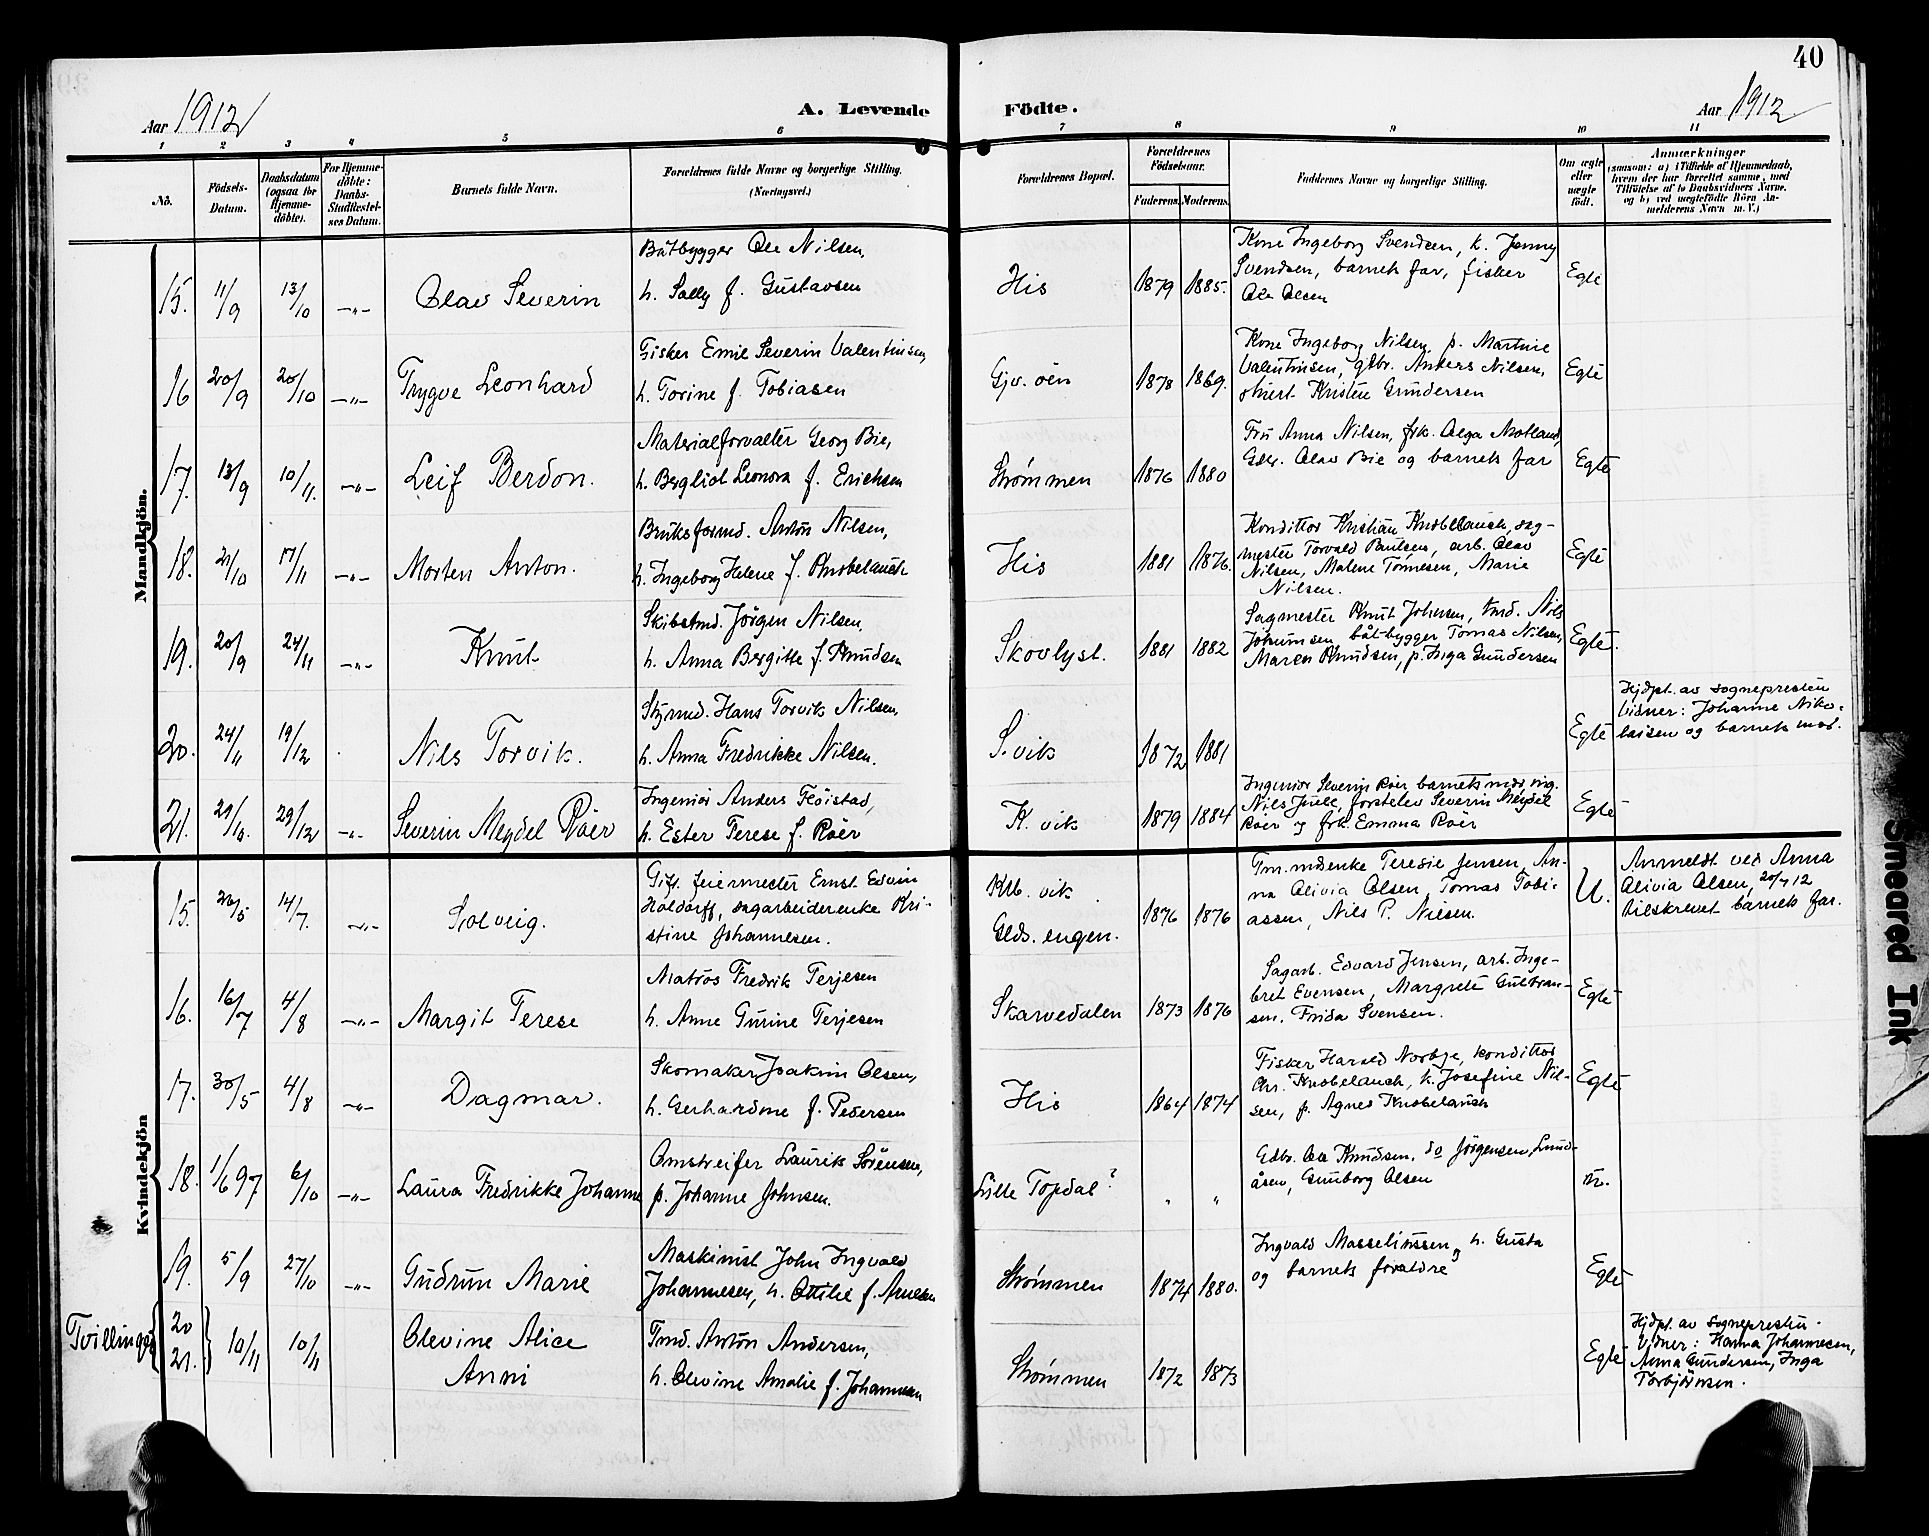 40
Aar 1912
A. Levende
Födte.
Aar 1912.
1 2 3 4 5 6 7 8 9 10 11
No.
Födsels-
Datum.
Daabsdatum
(ogsaa for
Hjemme-
döbte).
For Hjemme-
döbte:
Daabs
Stadfæstel-
ses Datum.
Barnets fulde Navn.
Forældrenes fulde Navne og borgerlige Stilling.
(Næringsvei.)
Forældrenes Bopæl.
Forældrenes
Födselsaar.
Faderens. Moderens.
Faddernes Navne og borgerlige Stilling.
Om ægte
eller
uægte
födt.
Anmærkninger
(saasom: a) i Tilfælde af Hjemmedaab,
hvem der har forrettet samme, med
Tilföielse af to Daabsvidners Navne.
og b) ved uægtefödte Börn An-
melderens Navn m. V.)
Mandkjön.
15. 11/9 13/10 -„- Olav Severin
Båtbygger Ole Nilsen,
h. Sally f. Gustavsen
His 1879 1885.
Kone Ingeborg Svendsen, k. Jenny
Svendsen, barnets far, fisker
Ole Olsen
Egte
16 20/9 20/10 -„- Trygve Leonhard
Fisker Emil Severin Valentinsen,
h. Torine f. Tobiasen
Gjv. öen 1878 1869.
Kone Ingeborg Nilsen, p. Martine
Valentinsen, gdbr. Anders Nilsen,
Kristen Gundersen
Egte
17. 13/9 10/11. -„- Leif Berdon.
Materialforvalter Georg Bie,
h. Bergliot Leonora f. Erichsen
Strømmen 1876 1880
Fru Anna Nilsen, frk. Olga Motland,
Olav Bie og barnets far
Egte
18. 21/10 17/11 -„- Morten Anton.
Bruksformd. Anton Nilsen,
h. Ingeborg Helene f. Knobelauch
His 1881 1876.
Konditor Kristian Knobelauch, sag-
mester Torvald Paulsen, arb. Olav
Nilsen, Malene Tønnesen, Marie
Nilsen.
Egte
19. 20/9 24/11 -„- Knut
Skibstmd. Jörgen Nilsen,
h. Anna Bergitte f. Knudsen
Skovlyst. 1881 1882
Sagmester Knut Johnsen, tmd. Nils
båtbygger Tomas Nilsen,
Maren Knudsen, p. Inga Gundersen
Egte.
20. 24/11 19/12 Nils Torvik.
Styrmd. Hans Torvik Nilsen,
h. Anna Fredrikke Nilsen.
S.vik 1872 1881
Egte
Hjdpt. av sognepresten
Vidner: Johanne Niko-
laisen og barnets mor.
21. 29/12 -„- Severin Meydel Röer
Ingeniör Anders Flöistad,
h. Ester Terese f. Röer
K. vik 1879 1884
Ingeniör Severin Röer barnets mor, ing.
Nils Juell, forstelev Severin Meydel
Röer og frk. Emma Röer
Egte
Kvindekjön
15. 20/5 14/7. -„- Solveig.
Gift feiermester Ernst Edvin
Holdorff, sagarbeiderenke Kri-
stine Johannesen.
Krb. vik
Glds. engen. 1876 1876
Tm.mdsenke Teresie Jensen, An-
na Olivia Olsen, Tomas Tobi-
assen, Nils P. Nilsen.
U.
Anmeldt ved Anna
Olivia Olsen, 20/7 12
tilskrevet barnets far.
16. 16/7 4/8 -„- Margit Terese
Matros Fredrik Terjesen
h. Anne Gurine Terjesen
Skarvedalen 1873 1876
Sagarb. Edvard Jensen, arb. Inge-
bret Evensen, Margrete Gulbran-
sen, Frida Svensen.
Egte
17. 30/5 4/8 -„- Dagmar.
Skomaker Joakim Olsen,
h. Gerhardine f. Pedersen
His 1864 1874
Fisker Harald Norbye, konditor
Chr. Knobelauch, k. Josefine Nil-
sen, p. Agnes Knobelauch
Egte
18. 1/6 97 6/10 -„- Laura Fredrikke Johanne
Omstreifer Laurits Sörensen,
p. Johanne Johnsen.
Lille Topdal? „ „
Gdbr. Ole Knudsen, do Jörgensen, Lund-
åsen, Gunborg Olsen
u.
19. 5/9 27/10 -„- Gudrun Marie
Maskinist John Ingvald
Johannesen, h. Ottilie f. Arnesen
Strømmen 1874 1880.
Ingvald Masselinssen, h. Gusta
og barnets foreldre
Egte
Tvillinger
20
21. 10/11 10/11 Olevine Alice
Anni
Tmd. Anton Andersen,
h. Olevine Amalie f. Johannesen
Strømmen 1872 1873
Egte
Hjdpt. av sognepresten.
Vidner: Hanna Johannesen,
Anna Gundersen, Inga
Torbjörnsen.
Smeared Ink